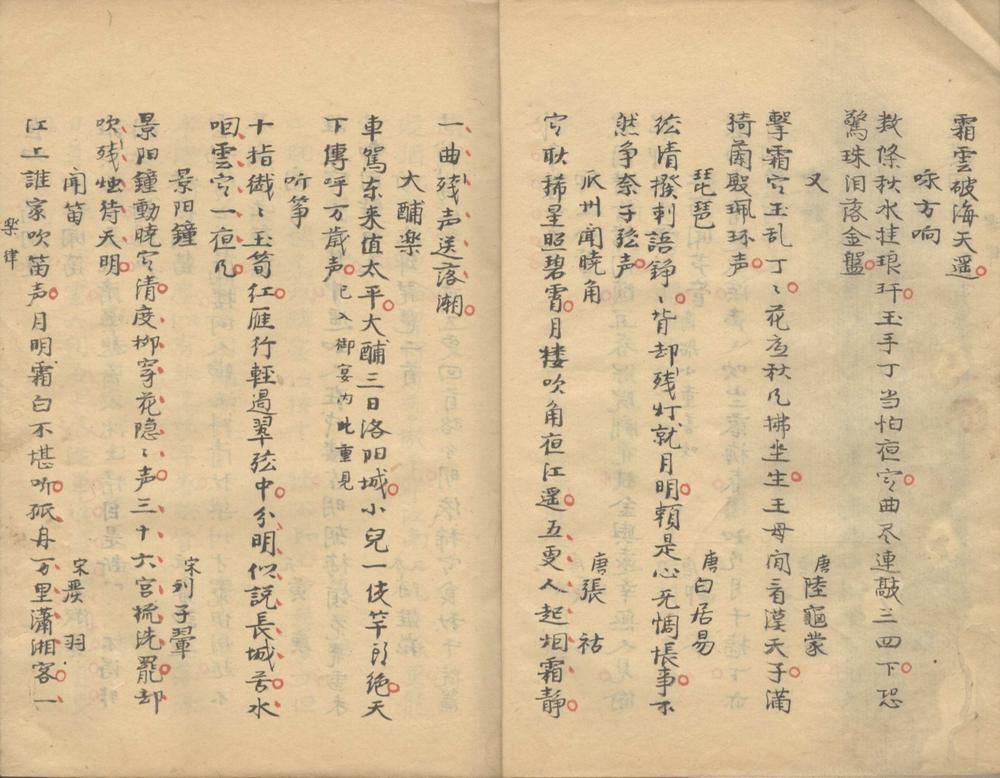 霜雲破海天遥
咏方响
数條秋水挂琅玕玉手丁当怕夜寒曲尽連敲三四下恐
驚珠泪落金盤
又　唐陸龜蒙
擊霜寒玉乱丁〻花底秋风拂坐生王母闲看漢天子满
猗蘭殿珮环声
琵琶　唐白居易
弦情撥刺語錚〻背却残灯就月明賴是心无惆悵事不
然争奈子弦声
瓜州闻曉角　唐張祜
寒耿稀星照碧霄月楼吹角夜江遥五更人起烟霜静
一曲残声送落潮
大酺樂
車駕东来值太平大酺三日洛阳城小兒一伎竿头绝天
下傳呼万歲声　已入御宴内此重見
听筝
十指纖〻玉笋红雁行輕過翠弦中分明似説長城苦水
咽雲寒一夜风
景阳鐘　宋刘子翬
景阳鐘動曉寒清度柳穿花隐〻声三十六宫梳洗罷却
吹残烛待天明
闻笛　宋嚴羽
江上誰家吹笛声月明霜白不堪听孤舟万里瀟湘客一
樂律